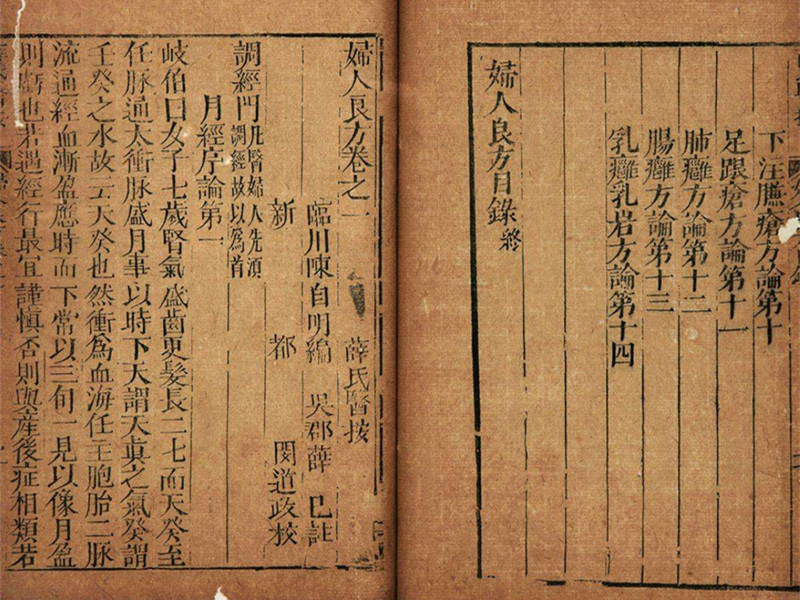 下注臁瘡方論第十
足跟瘡方論第十一
肺癰方論第十二
腸癰方論第十三
乳癰乳岩方論第十四
婦人良方目錄終
婦人良方卷之一
薛氏醫按
臨川陳自明編 吳郡薛 己註
新 都 閔道政校
調經門凡醫婦人先須調經故以為首
月經序論第一
岐伯曰女子七歲腎氣盛齒更髮長二七而天癸至
任脉通太衝脉盛月事以時下天謂天真之氣癸謂
壬癸之水故云天癸也然衝為血海任主胞胎二脉
流通經血漸盈應時而下常以三旬一見以像月盈
則虧也若遇經行最宜謹慎否則與產後症相類若